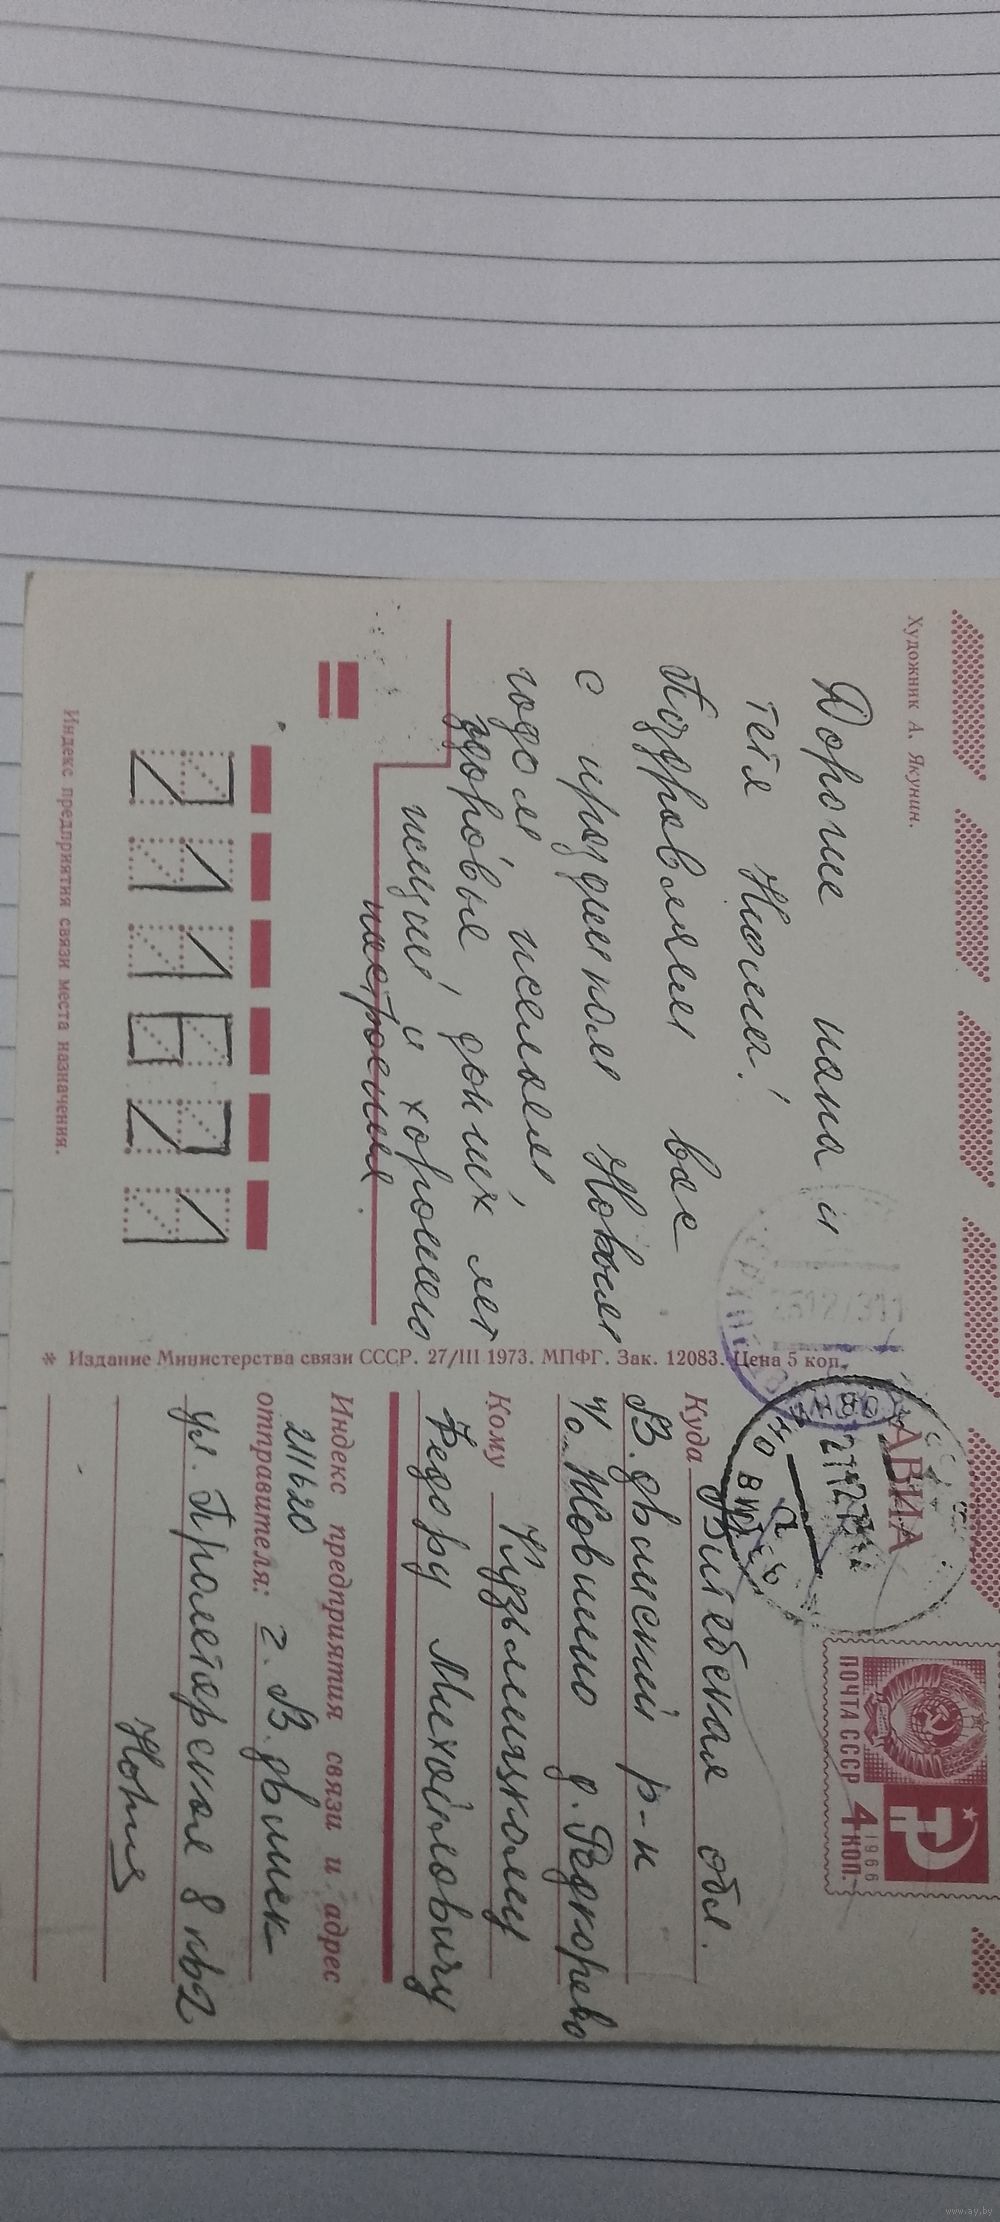 Художник А. Якунин.
АВИА
ПОЧТА СССР
1966
4 КОП.
Дорогие папа и
тётя Нюша!
Поздравляем вас
с праздником Новым
годом желаем
здоровья, долгих лет
жизни и хорошего
настроения.
Индекс предприятия связи места назначения.
711621
* Издание Министерства связи СССР. 27/III 1973. МПФГ. Зак. 12083. Цена 5 коп.
Куда Витебская обл.
В. Двинский р-н
п/о Жовнино д. Редкорево
Кому Кузьмицкому
Федору Михайловичу
Индекс предприятия связи и адрес
211620
отправителя: г. В. Двинск
ул. Пролетарская 8 кв 2
www.ay.by